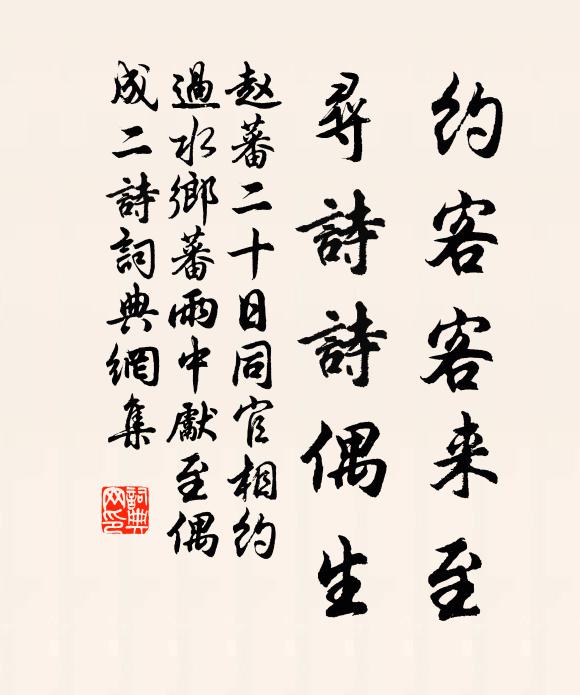 约客客来至
尋詩詩偶生
赵蕃二十日同官相约
過水鄉蕃雨中獻至偶
成二詩詞典網集
詞典
网印